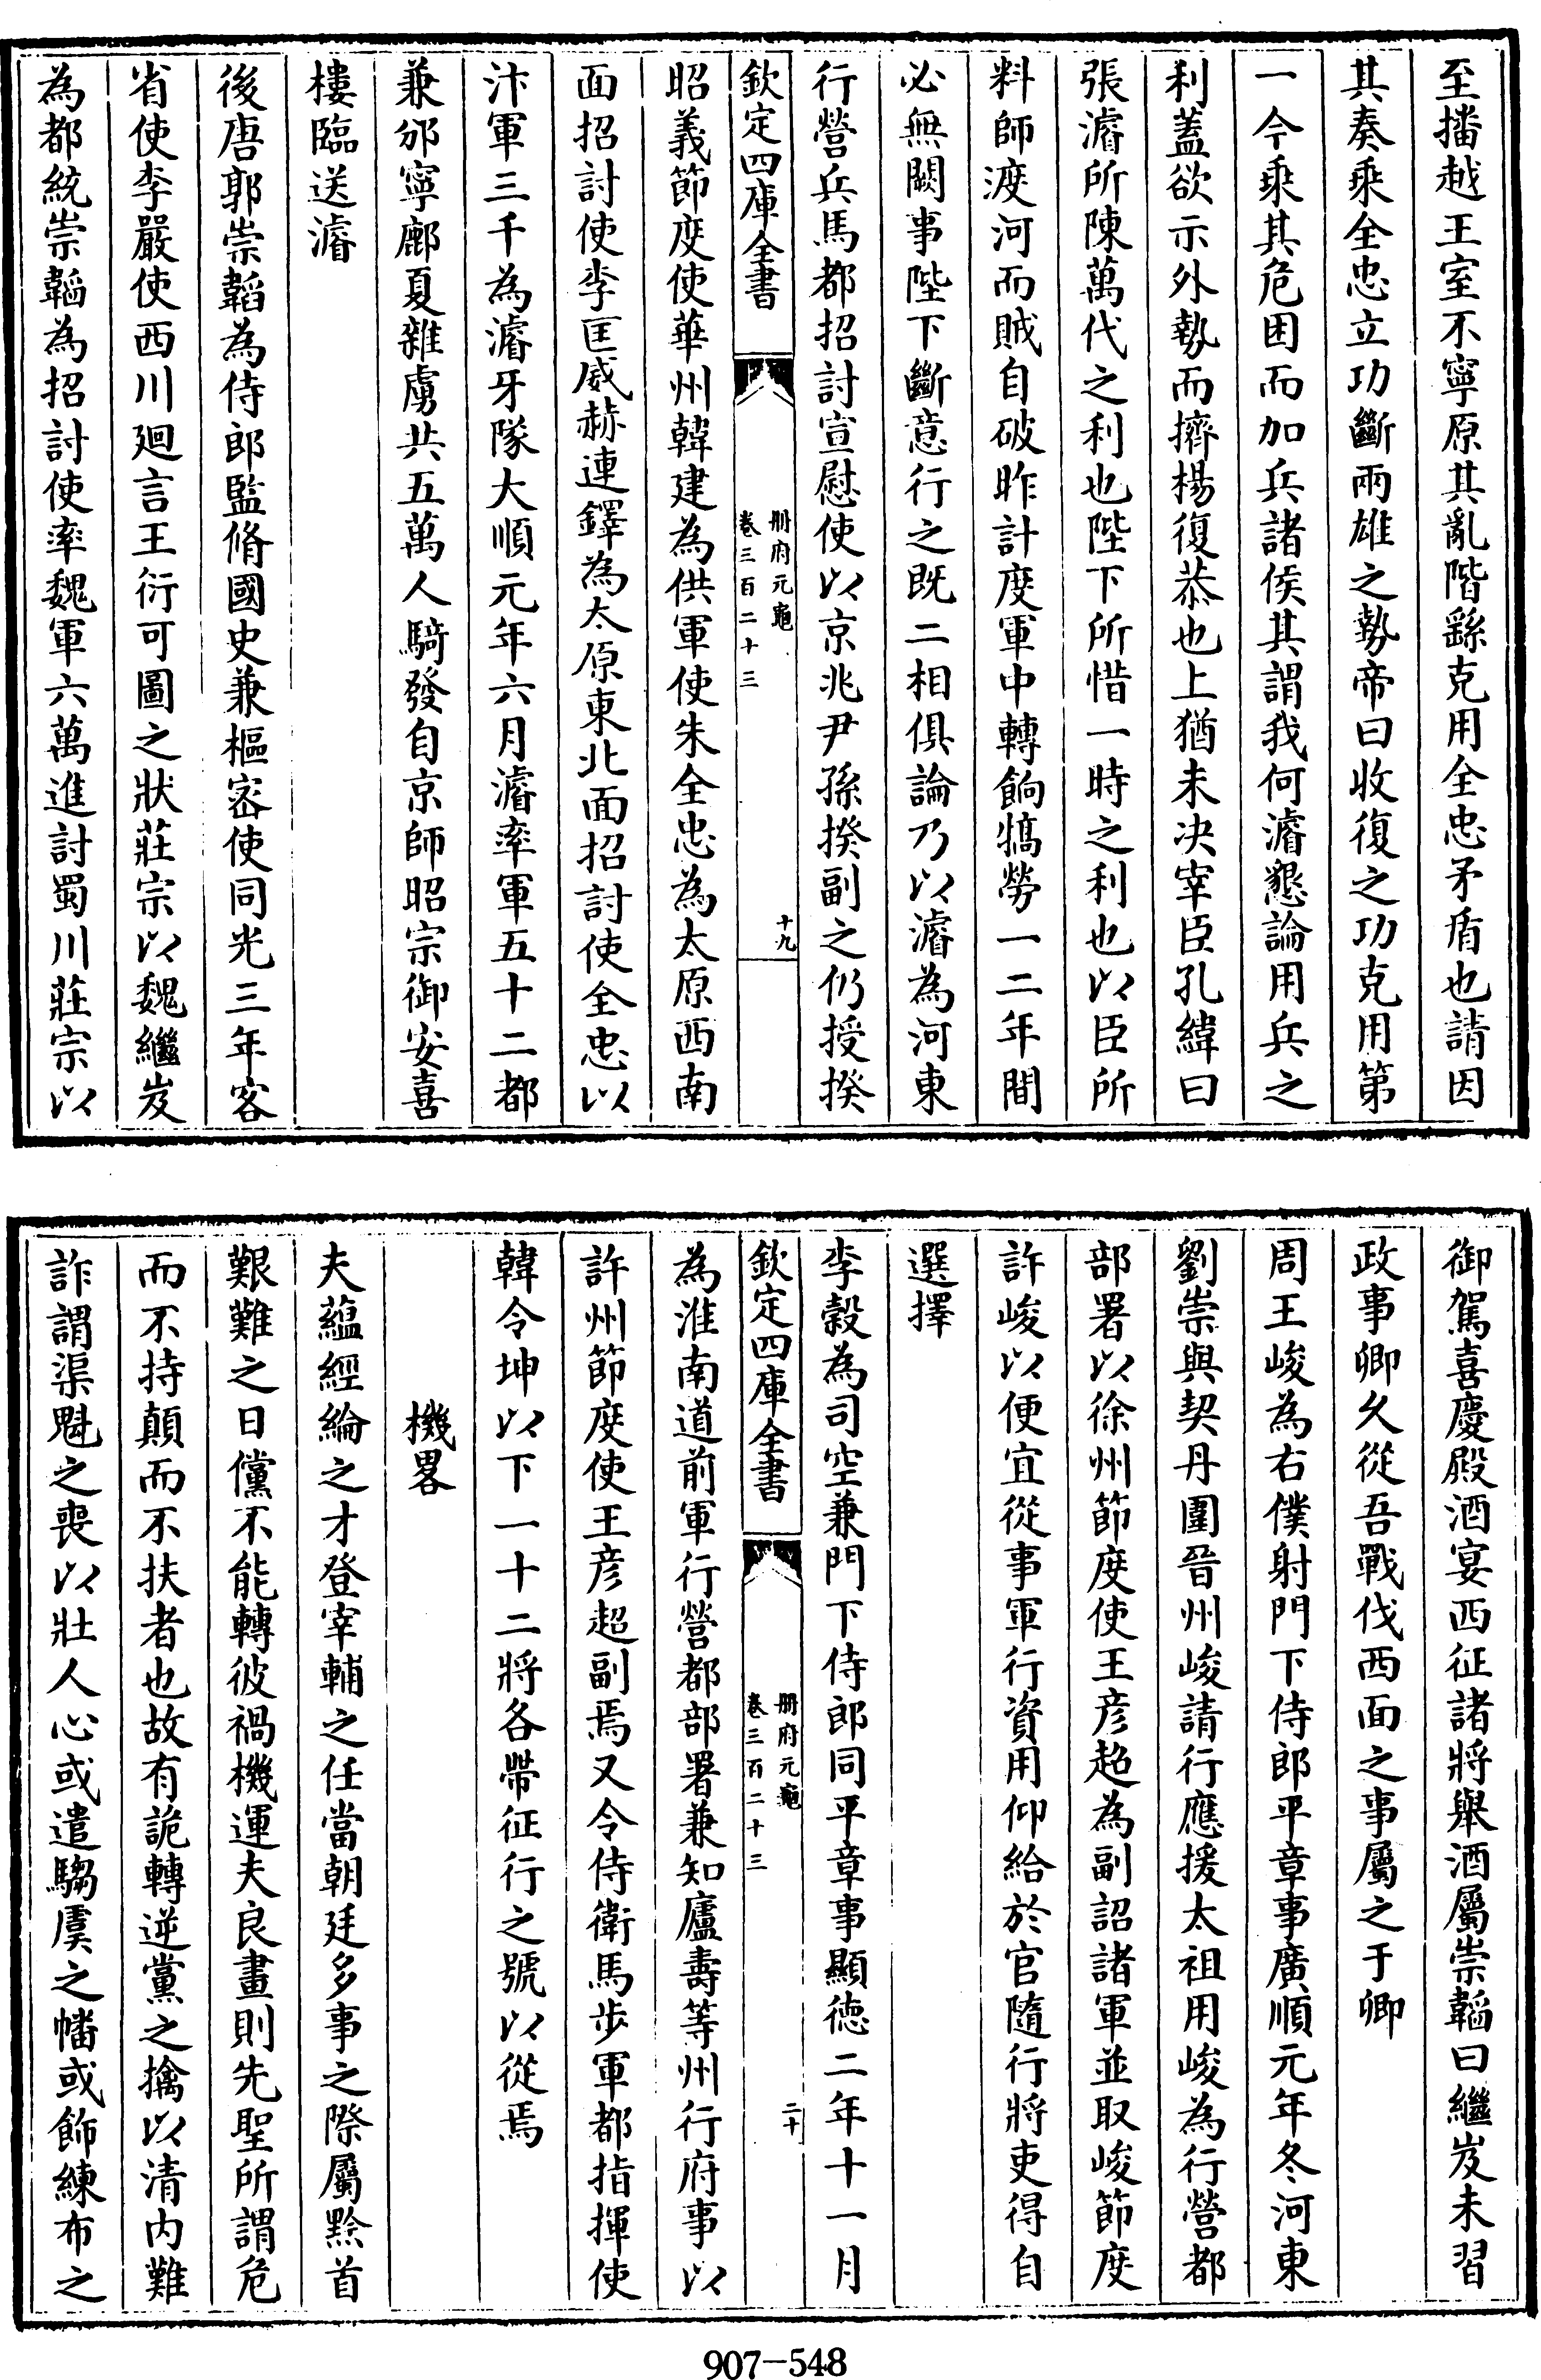 至播越王室不寧原其亂階繇克用全忠矛盾也請因
其奏乘全忠立功斷兩雄之勢帝曰收復之功克用第
一今乘其危困而加兵諸侯其謂我何濬懇論用兵之
利蓋欲示外勢而擠楊復恭也上猶未決宰臣孔緯曰
張濬所陳萬代之利也陛下所惜一時之利也以臣所
料師渡河而賊自破昨計度軍中轉餉犒勞一二年間
必無闕事陛下斷意行之既二相俱論乃以濬為河東
行營兵馬都招討宣慰使以京兆尹孫揆副之仍授揆
欽定四庫全書
冊府元龜
卷三百二十三
十九
昭義節度使華州韓建為供軍使朱全忠為太原西南
面招討使李匡威赫連鐸為太原東北面招討使全忠以
汴軍三千為濬牙隊大順元年六月濬率軍五十二都
兼邠寧鄜夏雜虜共五萬人騎發自京師昭宗御安喜
樓臨送濬
後唐郭崇韜為侍郎監脩國史兼樞密使同光三年客
省使李嚴使西川廻言王衍可圖之狀莊宗以魏繼岌
為都統崇韜為招討使率魏軍六萬進討蜀川莊宗以
御駕喜慶殿酒宴西征諸將舉酒屬崇韜曰繼岌未習
政事卿久從吾戰伐西面之事屬之于卿
周王峻為右僕射門下侍郎平章事廣順元年冬河東
劉崇與契丹圍晉州峻請行應援太祖用峻為行營都
部署以徐州節度使王彦超為副詔諸軍並取峻節度
許峻以便宜從事軍行資用仰給於官隨行將吏得自
選擇
李穀為司空兼門下侍郎同平章事顯德二年十一月
欽定四庫全書
冊府元龜
卷三百二十三
二十
為淮南道前軍行營都部署兼知廬壽等州行府事以
許州節度使王彦超副焉又令侍衛馬步軍都指揮使
韓令坤以下一十二將各帶征行之號以從焉
機畧
夫藴經綸之才登宰輔之任當朝廷多事之際屬黔首
艱難之日儻不能轉彼禍機運夫良畫則先聖所謂危
而不持顛而不扶者也故有詭轉逆黨之擒以清内難
詐謂渠魁之喪以壯人心或遣騶虞之幡或飾練布之
907-548